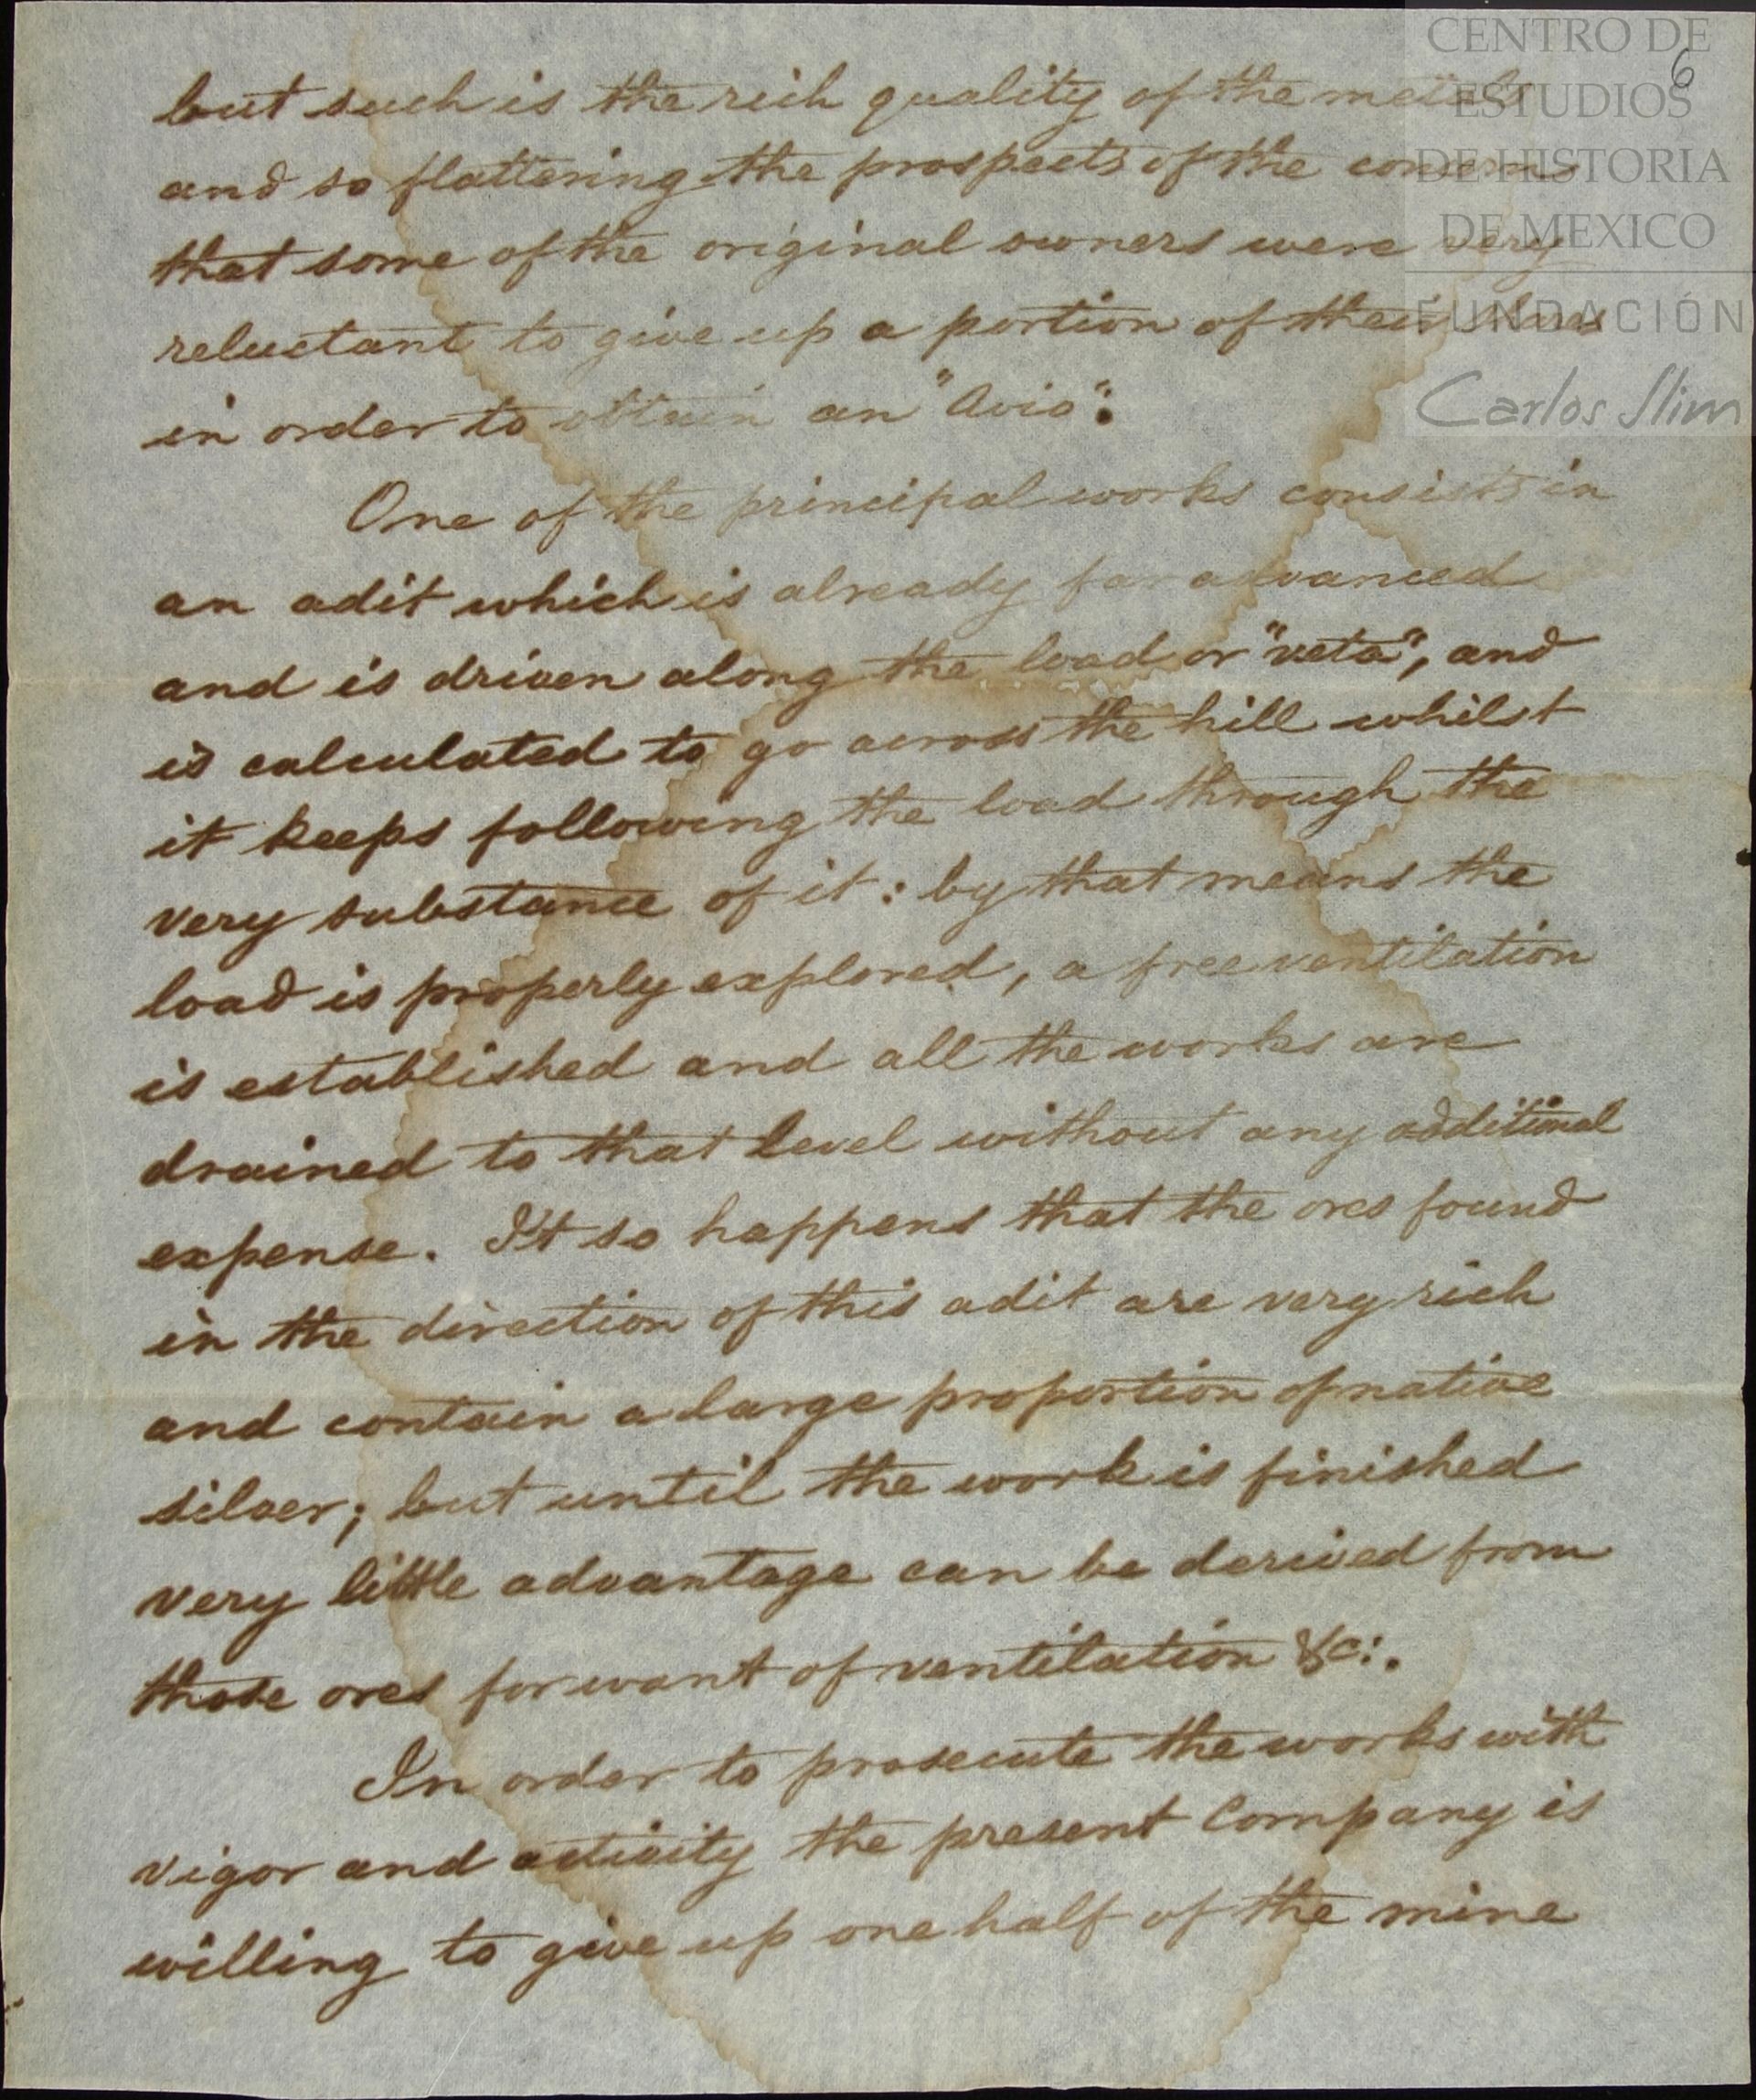 CENTRO DE
ESTUDIOS
DE HISTORIA
DE MEXICO
FUNDACIÓN
Carlos Slim
6
but such is the rich quality of the metals
and so flattering the prospects of the concern
that some of the original owners were very
reluctant to give up a portion of their shares
in order to obtain an "Avio":
One of the principal works consists in
an adit which is already far advanced
and is driven along the load or "veta", and
is calculated to go across the hill whilst
it keeps following the load through the
very substance of it: by that means the
load is properly explored, a free ventilation
is established and all the works are
drained to that level without any additional
expense. It so happens that the ores found
in the direction of this adit are very rich
and contain a large proportion of native
silver; but until the work is finished
very little advantage can be derived from
those ores for want of ventilation &c:.
In order to prosecute the works with
vigor and activity the present Company is
willing to give up one half of the mine